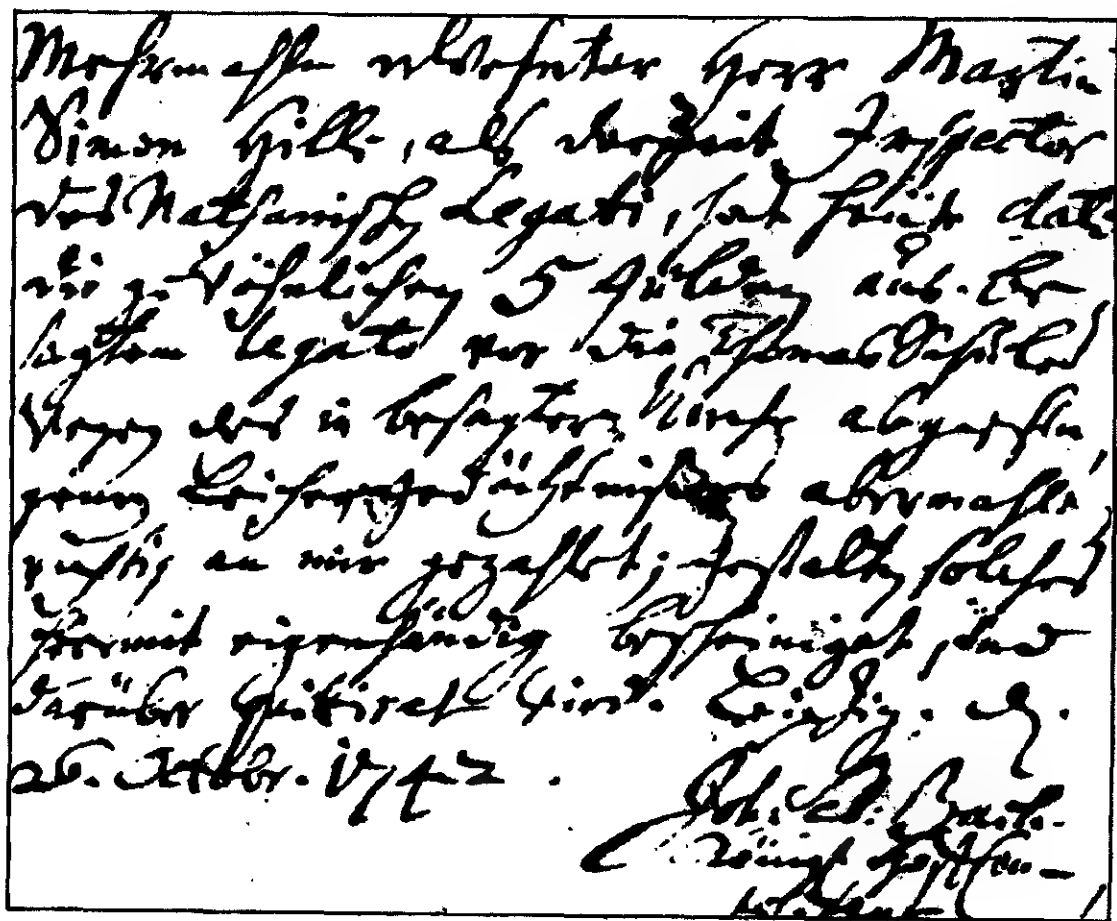 Mehrmahln erwehnter Herr Martin
Simon Hille, als derzeit Inspector
des Nathanischen Legati, hat heüte dato
die gewöhnlichen 5 Gülden aus be-
sagtem Legato vor die Thomas Schüler
wegen des in besagter Kirche abgesun-
genen Leichengedächtnißes abermahls
richtig an mir gezahlet; gestalten solches
hiermit eigenhändig bescheiniget, und
darüber quitiret wird. Leipzig. d.
26. Octobr. 1742.
Joh: Seb: Bach.
Königl. Hoff Com-